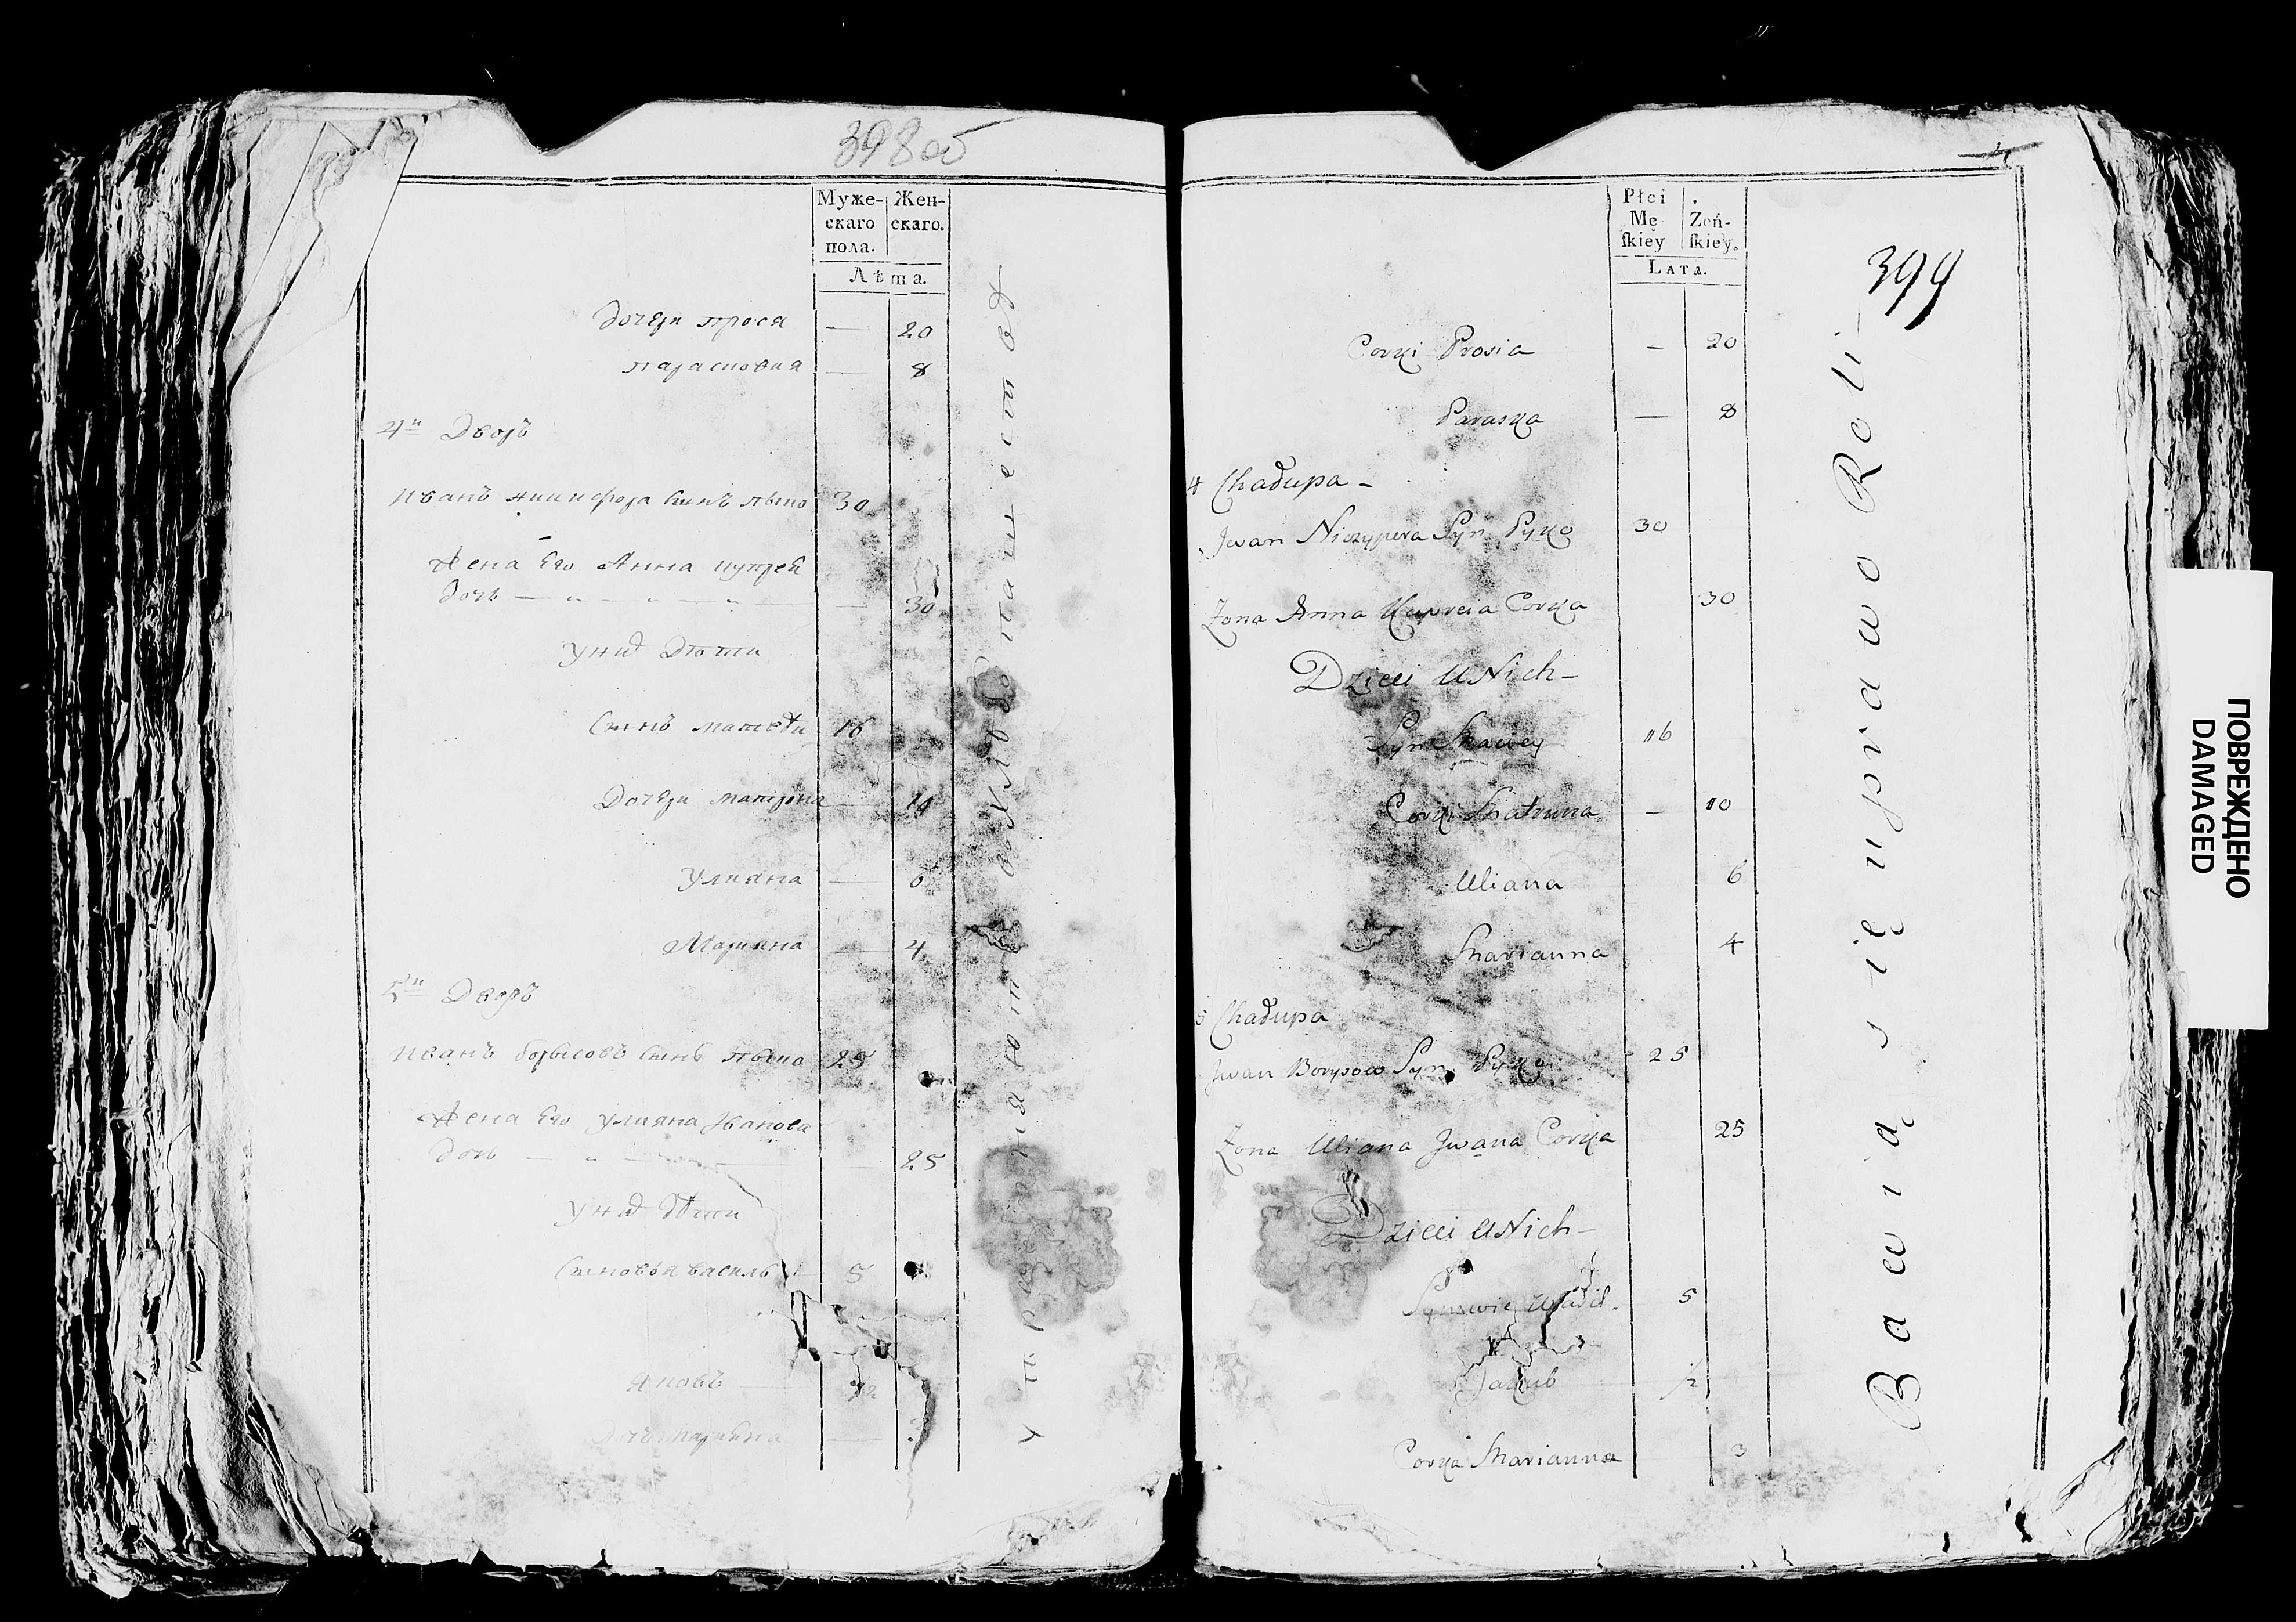 398 об
Муже-
скаго
пола.
Жен-
скаго.
Лѣта.
Дочери Прося — 20
Парасковия — 8
4й Дворъ
Иванъ Ничипора сынъ 30
Жена Его Анна Купрея
дочь — 30
У нихъ Дѣти
Сынъ Матвѣй 16
Дочери Матрона — 10
Улияна — 6
Марияна — 4
5й Дворъ
Иванъ Борысовъ сынъ 25
Жена Его Улияна Иванова
дочь — 25
У нихъ Дѣти
Сыновья василь 5
Яковъ 1/2
Дочь Марияна — 3
Упражняются в
399
Płci
Mę-
ſkiey
Żeń-
ſkiey.
Lata.
Corki Prosia — 20
Paraska — 8
4 Chałupa –
Jwan Niczypora Syn Pyko 30
Żona Anna Kupreia Corka 30
Dzieci u Nich –
Syn Macwey 16
Corki Matruna — 10
Uliana 6
Marianna 4
5 Chałupa
Jwan Borysow Syn Pyko 25
Żona Uliana Jwana Corka 25
Dzieci u Nich –
Synowie Wasil 5
Jakub 1/2
Corka Marianna 3
Bawią się uprawo Roli
ПОВРЕЖДЕНО
DAMAGED